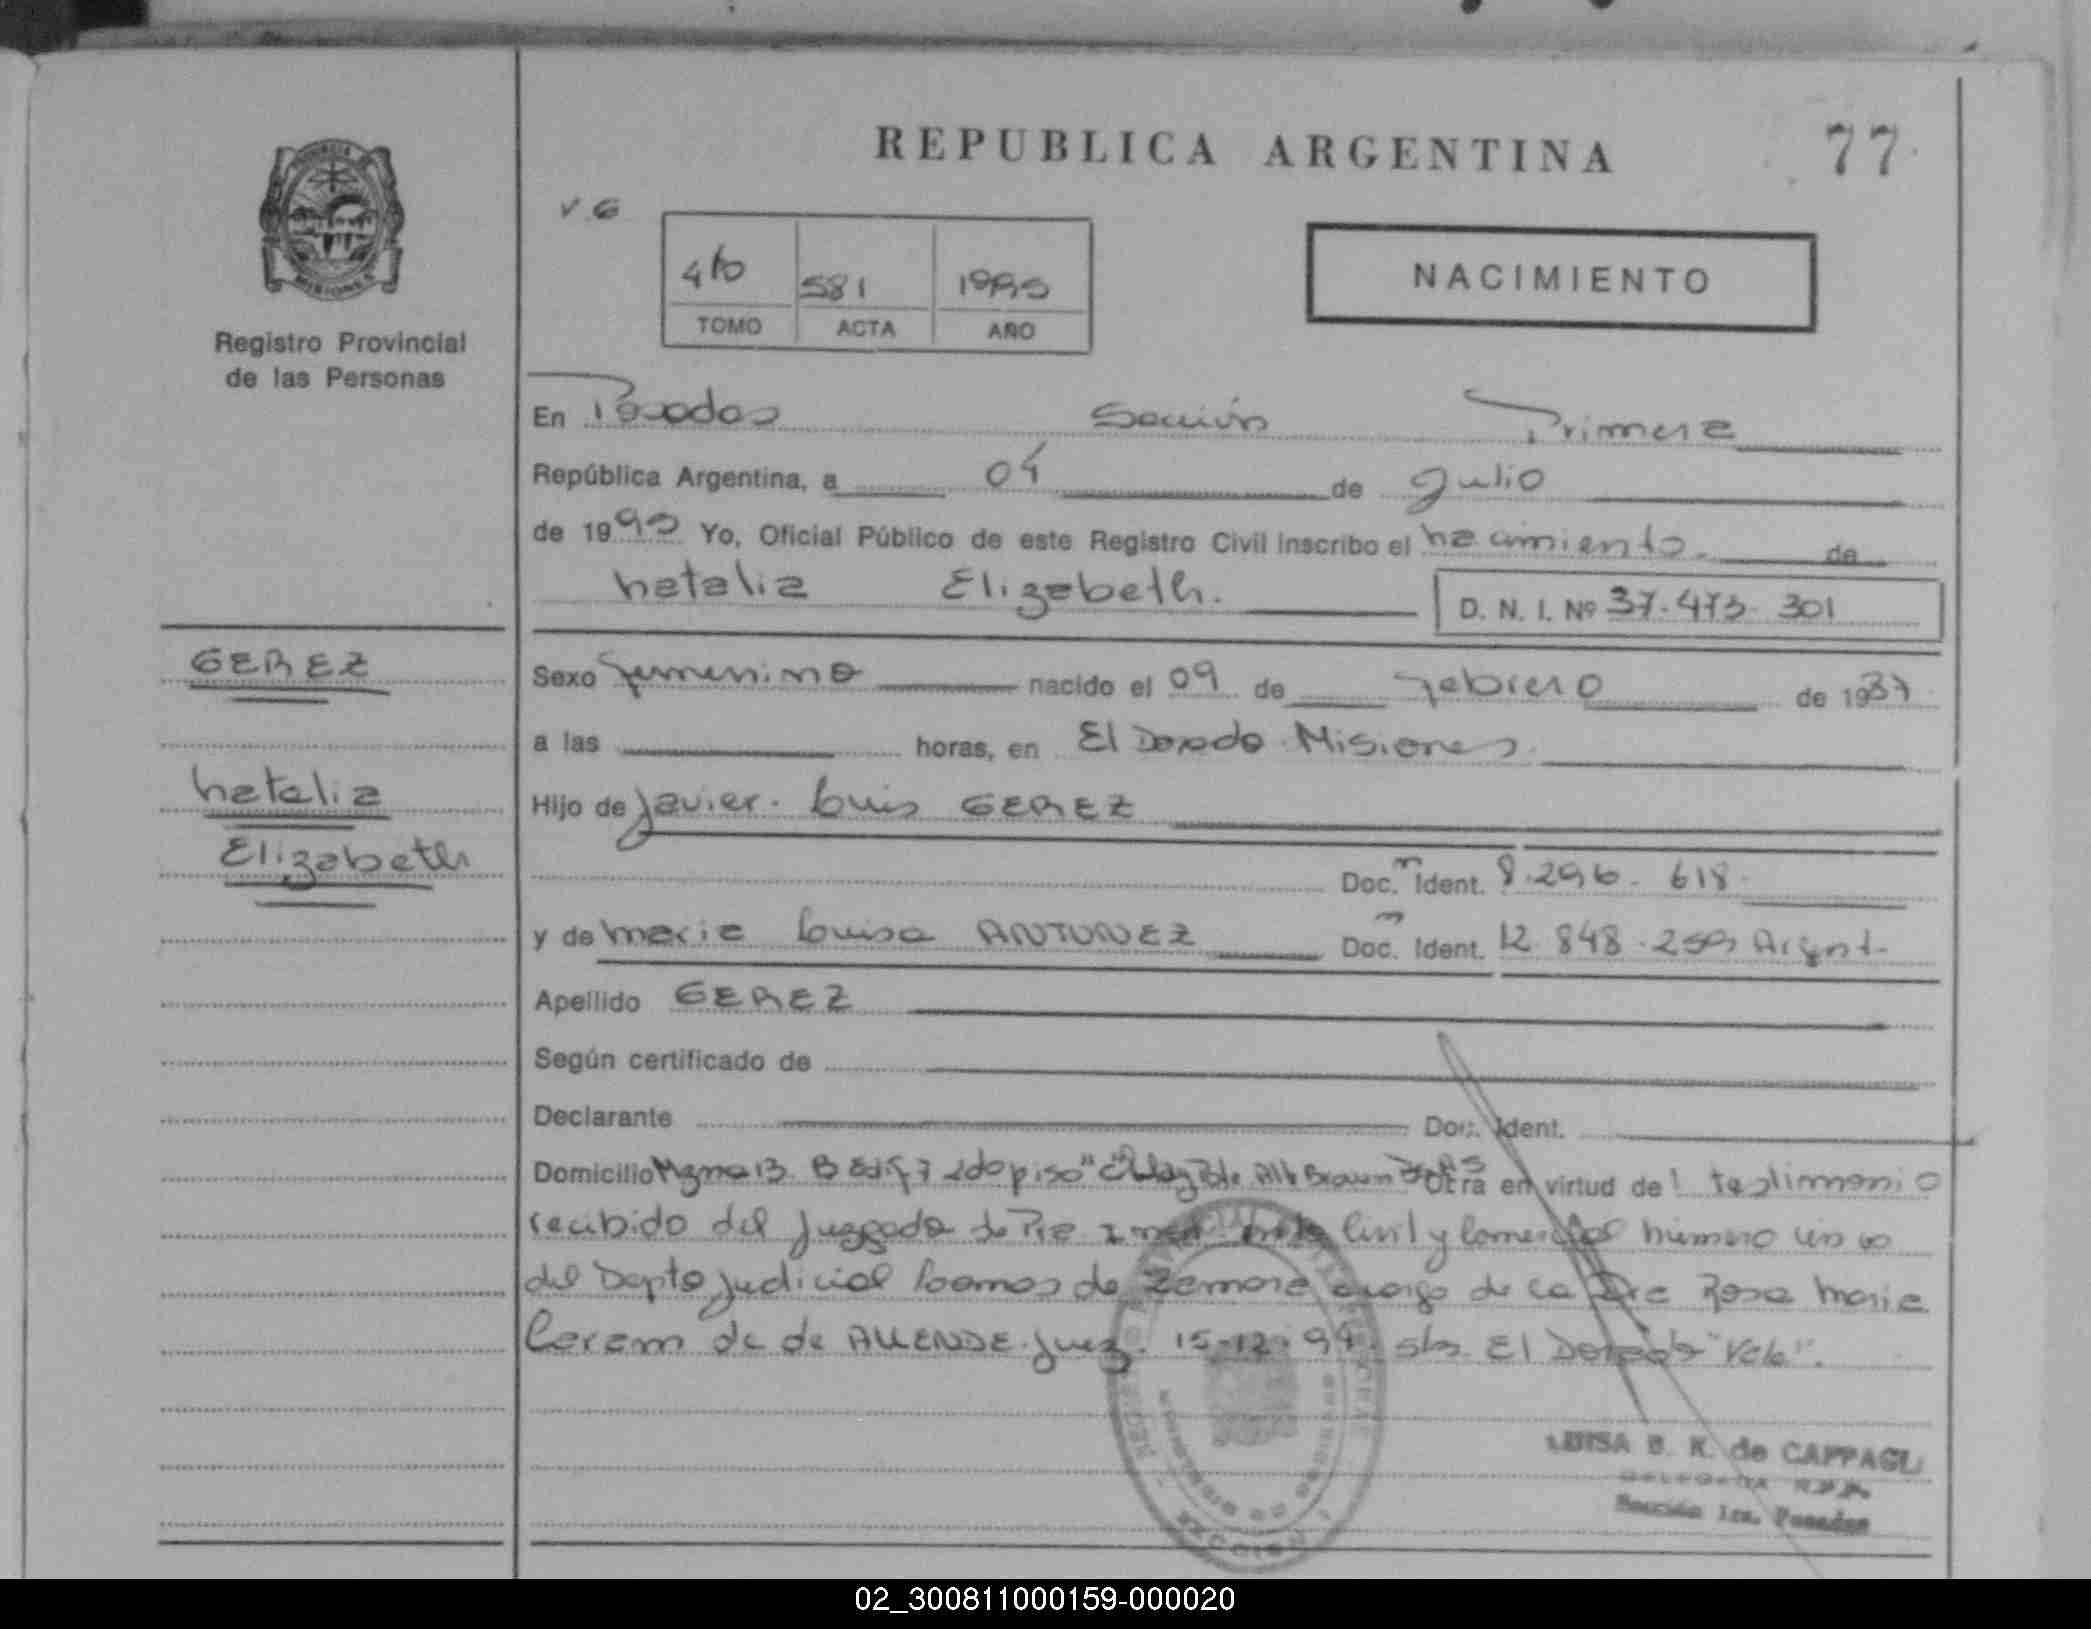 REPUBLICA ARGENTINA
77
PROVINCIA DE
MISIONES
Registro Provincial
de las Personas
V.G
4to 581 1995
TOMO ACTA AÑO
NACIMIENTO
En Posadas Sección Primera
República Argentina, a 04 de Julio
de 1995 Yo, Oficial Público de este Registro Civil inscribo el nacimiento de
natalia Elizabeth. D. N. I. Nº 37.473.301
GEREZ
natalia
Elizabeth
Sexo femenino nacido el 09 de febrero de 19
a las horas, en El Dorado Misiones
Hijo de Javier Luis GEREZ
Doc. Ident. 8.296.618
y de maria Luisa ANTUNEZ Doc. Ident. 12.848.259 Argent.
Apellido GEREZ
Según certificado de
Declarante Doc. Ident.
Domicilio Mzna 13 B Edif 7 2do piso "C" Alte Brown Otra en virtud del testimonio
recibido del Juzgado de Civil y Comercial número uno
del Depto Judicial Lomas de Zamora a cargo de la Dra Rosa Maria
de ALLENDE Juez. 15-12-94 El Dorado "Vale".
LUISA B. K. de CAPPAGLI
DELEGADA R.P.P.
Sección 1ra. Posadas
SECCION
02_300811000159-000020